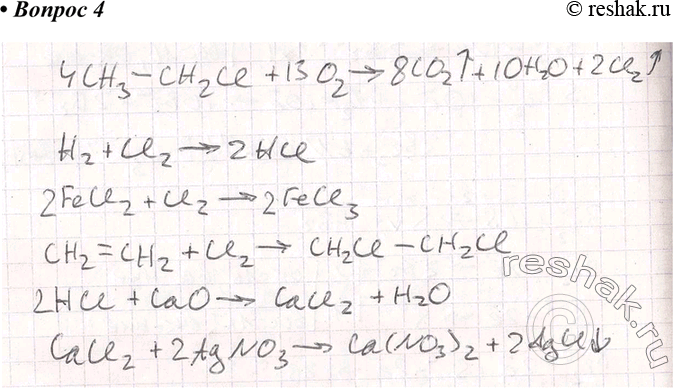 • Вопрос 4
© reshak.ru
4CH₃−CH₂Cl + 13O₂ → 8CO₂↑ + 10H₂O + 2Cl₂↑
H₂ + Cl₂ → 2HCl
2FeCl₂ + Cl₂ → 2FeCl₃
CH₂=CH₂ + Cl₂ → CH₂Cl−CH₂Cl
2HCl + CaO → CaCl₂ + H₂O
CaCl₂ + 2AgNO₃ → Ca(NO₃)₂ + 2AgCl↓
reshak.ru
©